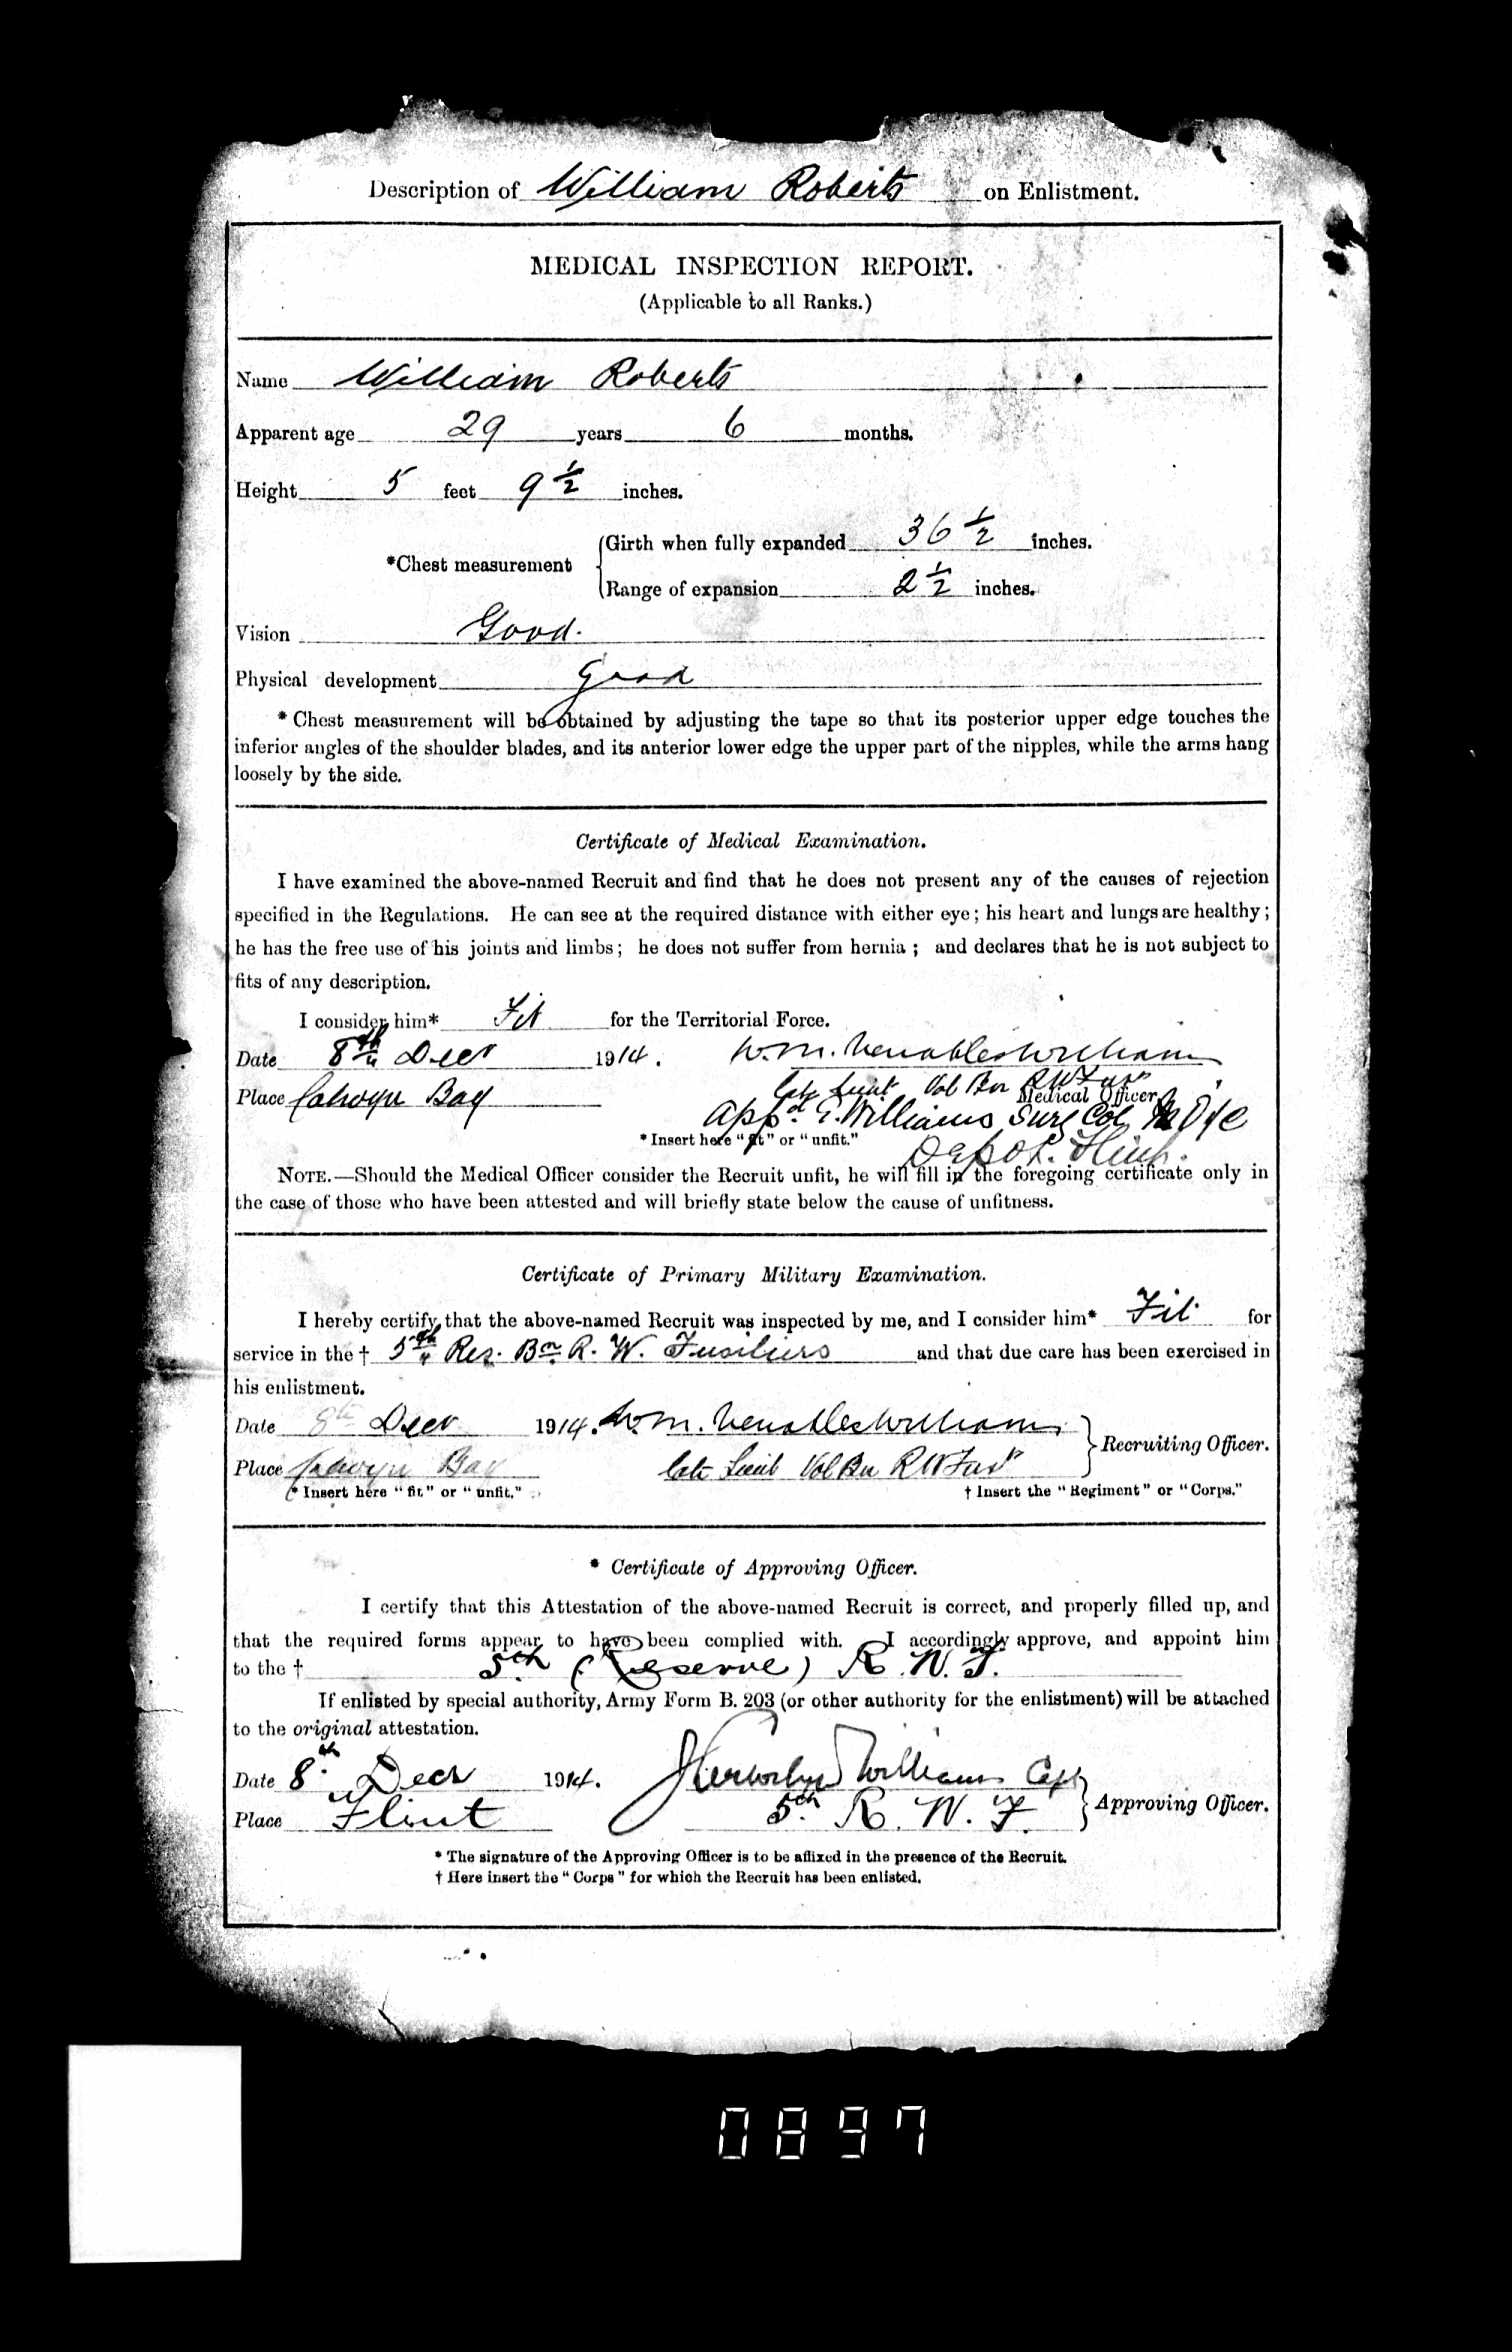 Description of William Roberts on Enlistment.
MEDICAL INSPECTION REPORT.
(Applicable to all Ranks.)
Name William Roberts
Apparent age 29 years 6 months.
Height 5 feet 9 ½ inches.
*Chest measurement
Girth when fully expanded 36 ½ inches.
Range of expansion 2 ½ inches.
Vision Good.
Physical development Good
* Chest measurement will be obtained by adjusting the tape so that its posterior upper edge touches the
inferior angles of the shoulder blades, and its anterior lower edge the upper part of the nipples, while the arms hang
loosely by the side.
Certificate of Medical Examination.
I have examined the above-named Recruit and find that he does not present any of the causes of rejection
specified in the Regulations. He can see at the required distance with either eye; his heart and lungs are healthy;
he has the free use of his joints and limbs; he does not suffer from hernia; and declares that he is not subject to
fits of any description.
I consider him* Fit for the Territorial Force.
Date 8th Decr 1914. W. M. Venables Williams
Place Colwyn Bay late Lieut Vol Bn R W Fusrs
Medical Officer
App.d E. Williams Surg Col M O i/c
* Insert here "fit" or "unfit."
Depot. Flint.
NOTE.—Should the Medical Officer consider the Recruit unfit, he will fill in the foregoing certificate only in
the case of those who have been attested and will briefly state below the cause of unfitness.
Certificate of Primary Military Examination.
I hereby certify that the above-named Recruit was inspected by me, and I consider him* Fit for
service in the † 5th Res. Bn. R. W. Fusiliers and that due care has been exercised in
his enlistment.
Date 8th Decr 1914. W. M. Venables Williams
Recruiting Officer.
Place Colwyn Bay late Lieut Vol Bn R W Fusrs
* Insert here "fit" or "unfit." † Insert the "Regiment" or "Corps."
* Certificate of Approving Officer.
I certify that this Attestation of the above-named Recruit is correct, and properly filled up, and
that the required forms appear to have been complied with. I accordingly approve, and appoint him
to the † 5th (Reserve) R. W. F.
If enlisted by special authority, Army Form B. 203 (or other authority for the enlistment) will be attached
to the original attestation.
Date 8th Decr 1914. Williams Capt
Approving Officer.
Place Flint 5th R. W. F.
* The signature of the Approving Officer is to be affixed in the presence of the Recruit.
† Here insert the "Corps" for which the Recruit has been enlisted.
0897